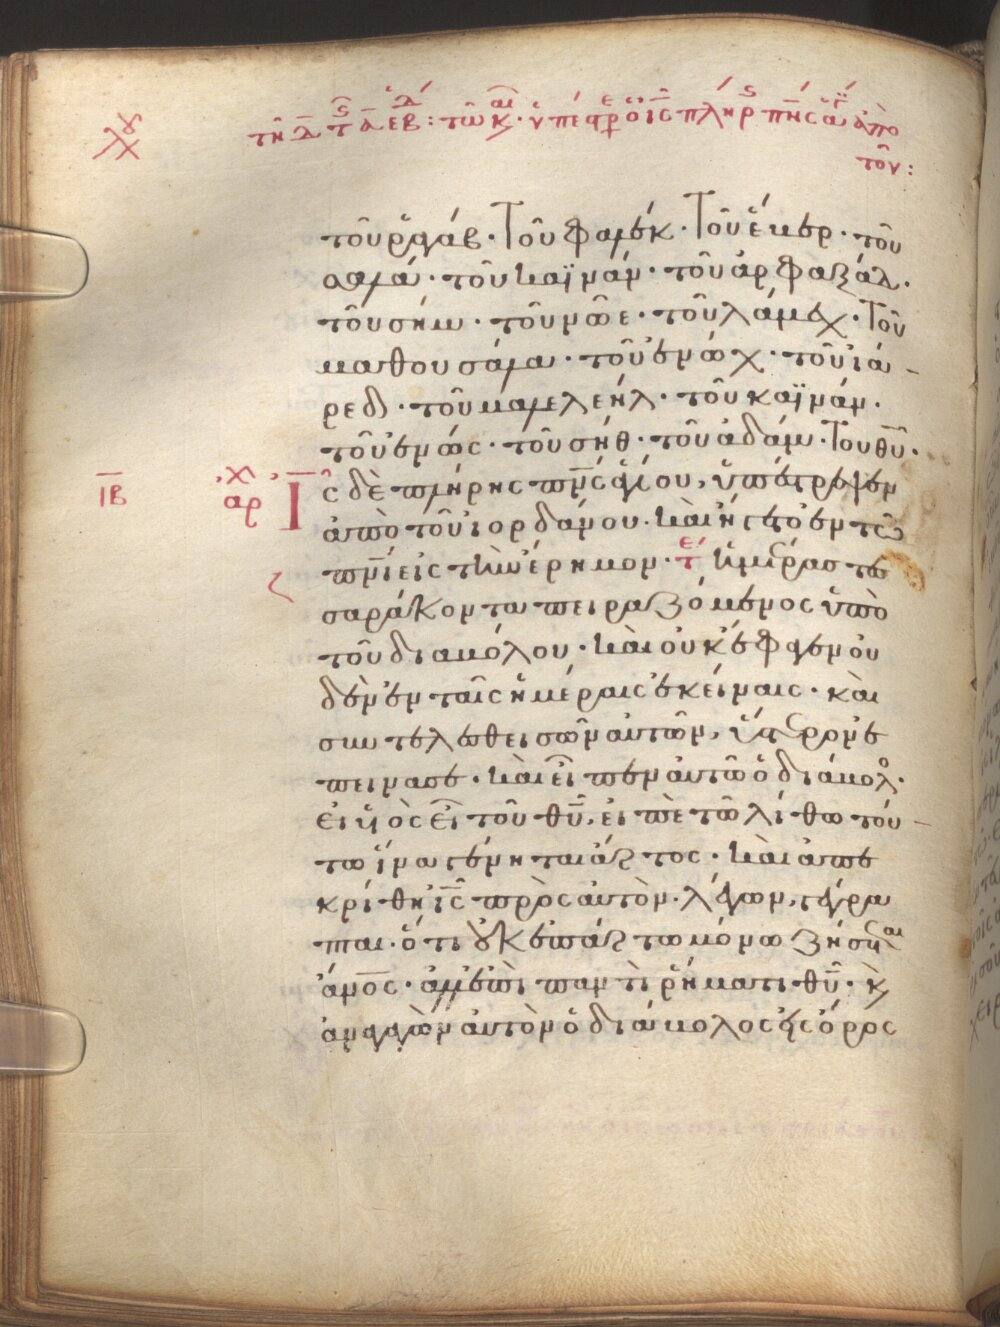 τοῦ ῥαγάβ· Τοῦ φαλέκ· Τοῦ ἔμβερ· τοῦ
σαλά· τοῦ καϊνάν· τοῦ ἀρφαξάδ·
τοῦ σήμ· τοῦ νῶε· τοῦ λάμεχ· Τοῦ
μαθουσάλα· τοῦ ἐνώχ· τοῦ ἰά-
ρεδ· τοῦ μαλελεήλ· τοῦ καϊνάν·
τοῦ ἐνώς· τοῦ σήθ· τοῦ ἀδάμ· Τοῦ θῦ·
ΙΒ
αρχ
Ις δὲ πλήρης πνς ἁγίου, ὑπέστρεψεν
ἀπὸ τοῦ ἰορδάνου· καὶ ἤγετο ἐν τῶ
πνι εἰς τὴν ἔρημον· ἡμέρας τεσ
σαράκοντα πειραζόμενος ὑπὸ
τοῦ διαβόλου· καὶ οὐκ ἔφαγεν οὐ
δὲν ἐν ταῖς ἡμέραις ἐκείναις· καὶ
συντελεσθεισῶν αὐτῶν, ὕστερον ἐ
πείνασε· καὶ εἶπεν αὐτῶ ὁ διάβολ·
εἰ υἱὸς εἶ τοῦ θῦ, εἰπὲ τῶ λίθω τού-
τω ἵνα γένηται ἄρτος· καὶ ἀπε
κρίθη ις πρὸς αὐτὸν· λέγων, γέγρα
πται· ὅτι οὐκ ἐπ' ἄρτω μόνω ζήσεται
ἄνος· ἀλλ' ἐπὶ παντὶ ῥήματι θῦ· κ
ἀναγαγὼν αὐτὸν ὁ διάβολος εἰς ὄρος